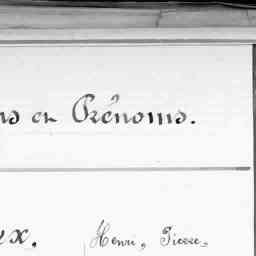 ns en Prénoms.
ex. Henri, Pierre,